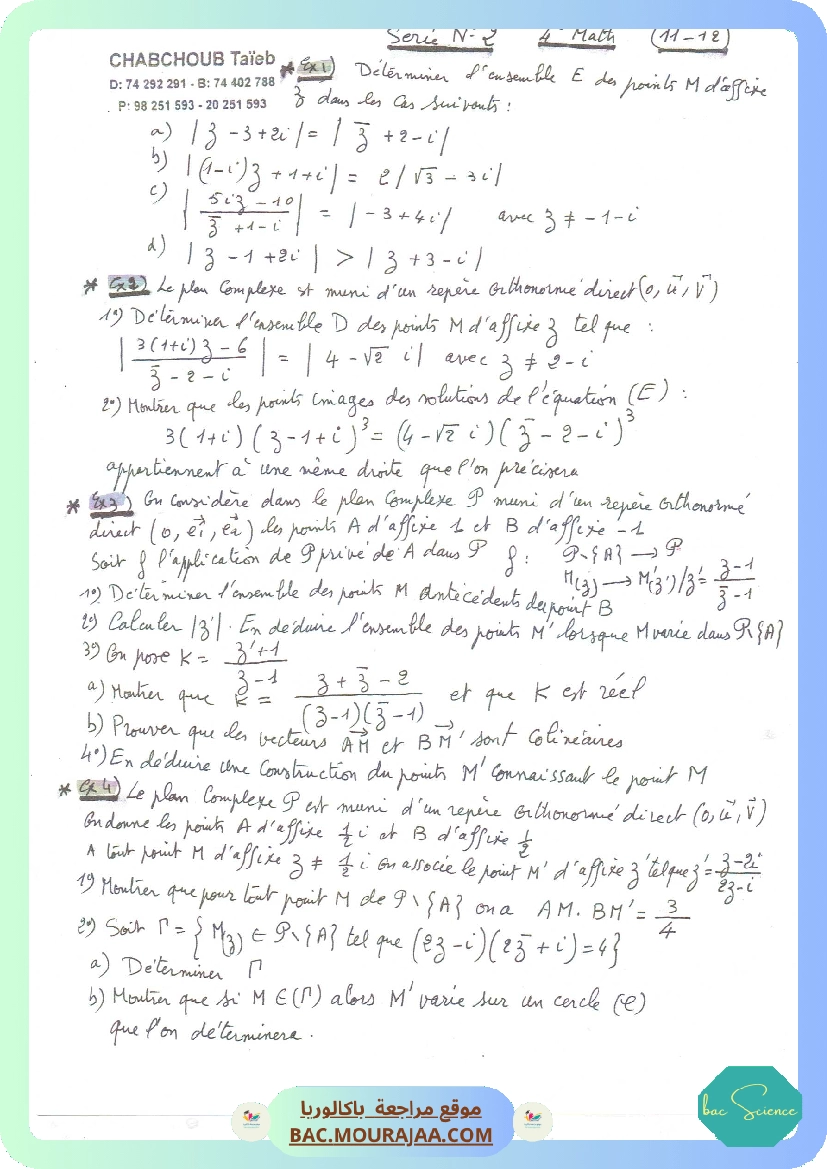 Serie N° 2 4° Math (11-12)
CHABCHOUB Taïeb
D: 74 292 291 - B: 74 402 788
P: 98 251 593 - 20 251 593
* Ex1) Déterminer l'ensemble E des points M d'affixe
z dans les cas suivants :
a) |z - 3 + 2i| = |z̄ + 2 - i|
b) |(1-i)z + 1 + i| = 2|√3 - 3i|
c) |(5iz - 10)/(z̄ + 1 - i)| = |-3 + 4i| avec z ≠ -1 - i
d) |z - 1 + 2i| > |z + 3 - i|
* Ex2) Le plan complexe st muni d'un repère orthonormé direct (0, u⃗, v⃗)
1°) Déterminer l'ensemble D des points M d'affixe z tel que :
|(3(1+i)z - 6)/(z̄ - 2 - i)| = |4 - √2 i| avec z ≠ 2 - i
2°) Montrer que les points images des solutions de l'équation (E) :
3(1+i)(z - 1 + i)³ = (4 - √2 i)(z̄ - 2 - i)³
appartiennent à une même droite que l'on précisera
* Ex3) On considère dans le plan complexe P muni d'un repère orthonormé
direct (0, e⃗₁, e⃗₂) les points A d'affixe 1 et B d'affixe -1
Soit f l'application de P privé de A dans P f : P\{A} → P
M(z) → M'(z')/z' = (z - 1)/(z̄ - 1)
1°) Déterminer l'ensemble des points M antécédents du point B
2°) Calculer |z'|. En déduire l'ensemble des points M' lorsque M varie dans P\{A}
3°) On pose K = (z' + 1)/(z - 1)
a) Montrer que K = (z + z̄ - 2)/((z - 1)(z̄ - 1)) et que K est réel
b) Prouver que les vecteurs AM⃗ et BM'⃗ sont colinéaires
4°) En déduire une construction du points M' connaissant le point M
* Ex4) Le plan complexe P est muni d'un repère orthonormé direct (0, u⃗, v⃗)
On donne les points A d'affixe ½ i et B d'affixe ½
A tout point M d'affixe z ≠ ½ i on associe le point M' d'affixe z' tel que z' = (z - 2i)/(2z - i)
1°) Montrer que pour tout point M de P\{A} on a AM. BM' = 3/4
2°) Soit Γ = {M(z) ∈ P\{A} tel que (2z - i)(2z̄ + i) = 4}
a) Déterminer Γ
b) Montrer que si M ∈ (Γ) alors M' varie sur un cercle (C)
que l'on déterminera.
موقع مراجعة باكالوريا
BAC.MOURAJAA.COM
bac Science